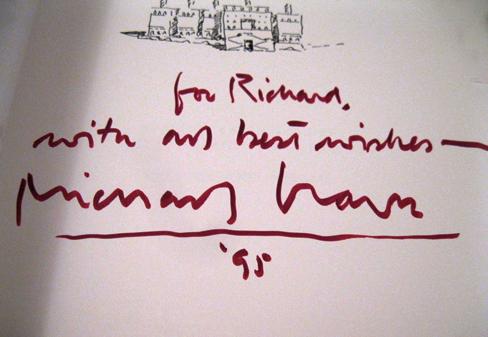 for Richard,
with all best wishes—
'95